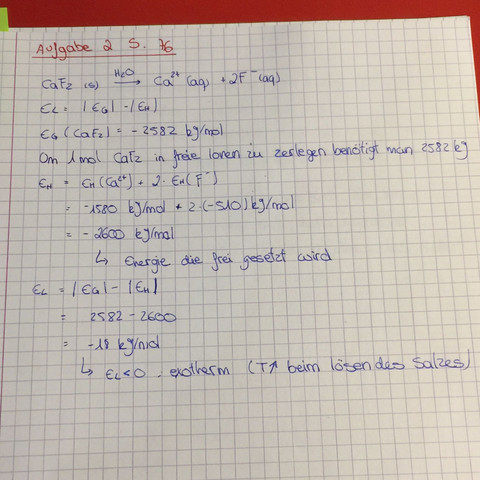 Aufgabe 2 S. 76
CaF2 (s) H2O → Ca²⁺ (aq) + 2F⁻ (aq)
EL = |EG| - |EH|
EG (CaF2) = - 2582 kg/mol
Om 1 mol CaF2 in freie Ionen zu zerlegen benötigt man 2582 kg
EH = EH (Ca²⁺) + 2 · EH (F⁻)
= -1580 kg/mol + 2·(-510) kg/mol
= - 2600 kg/mol
↳ Energie die frei gesetzt wird
EL = |EG| - |EH|
= 2582 - 2600
= -18 kg/mol
↳ EL<0 . exotherm (T↗ beim lösen des Salzes)